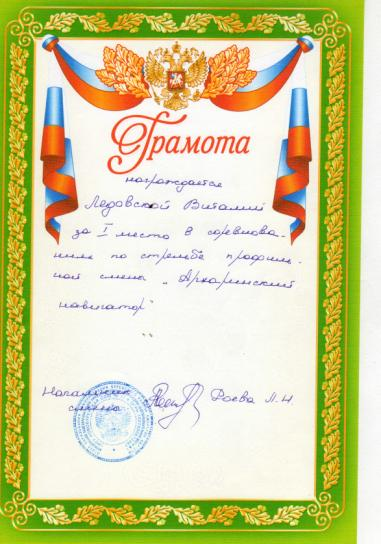 Грамота
награждается
Ледовской Виталий
за I место в соревнова-
ниях по стрельбе профиль-
ной смены „Архаринский
навигатор"
Начальник
смены Роева Л.Н.